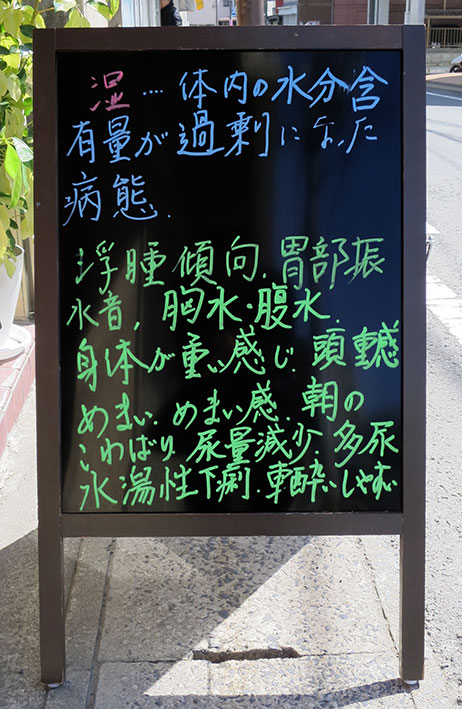 湿…体内の水分含
有量が過剰になった
病態.
浮腫傾向.胃部振
水音,胸水・腹水.
身体が重い感じ.頭重感
めまい.めまい感.朝の
こわばり.尿量減少.多尿
水瀉性下痢.車酔いしやすい